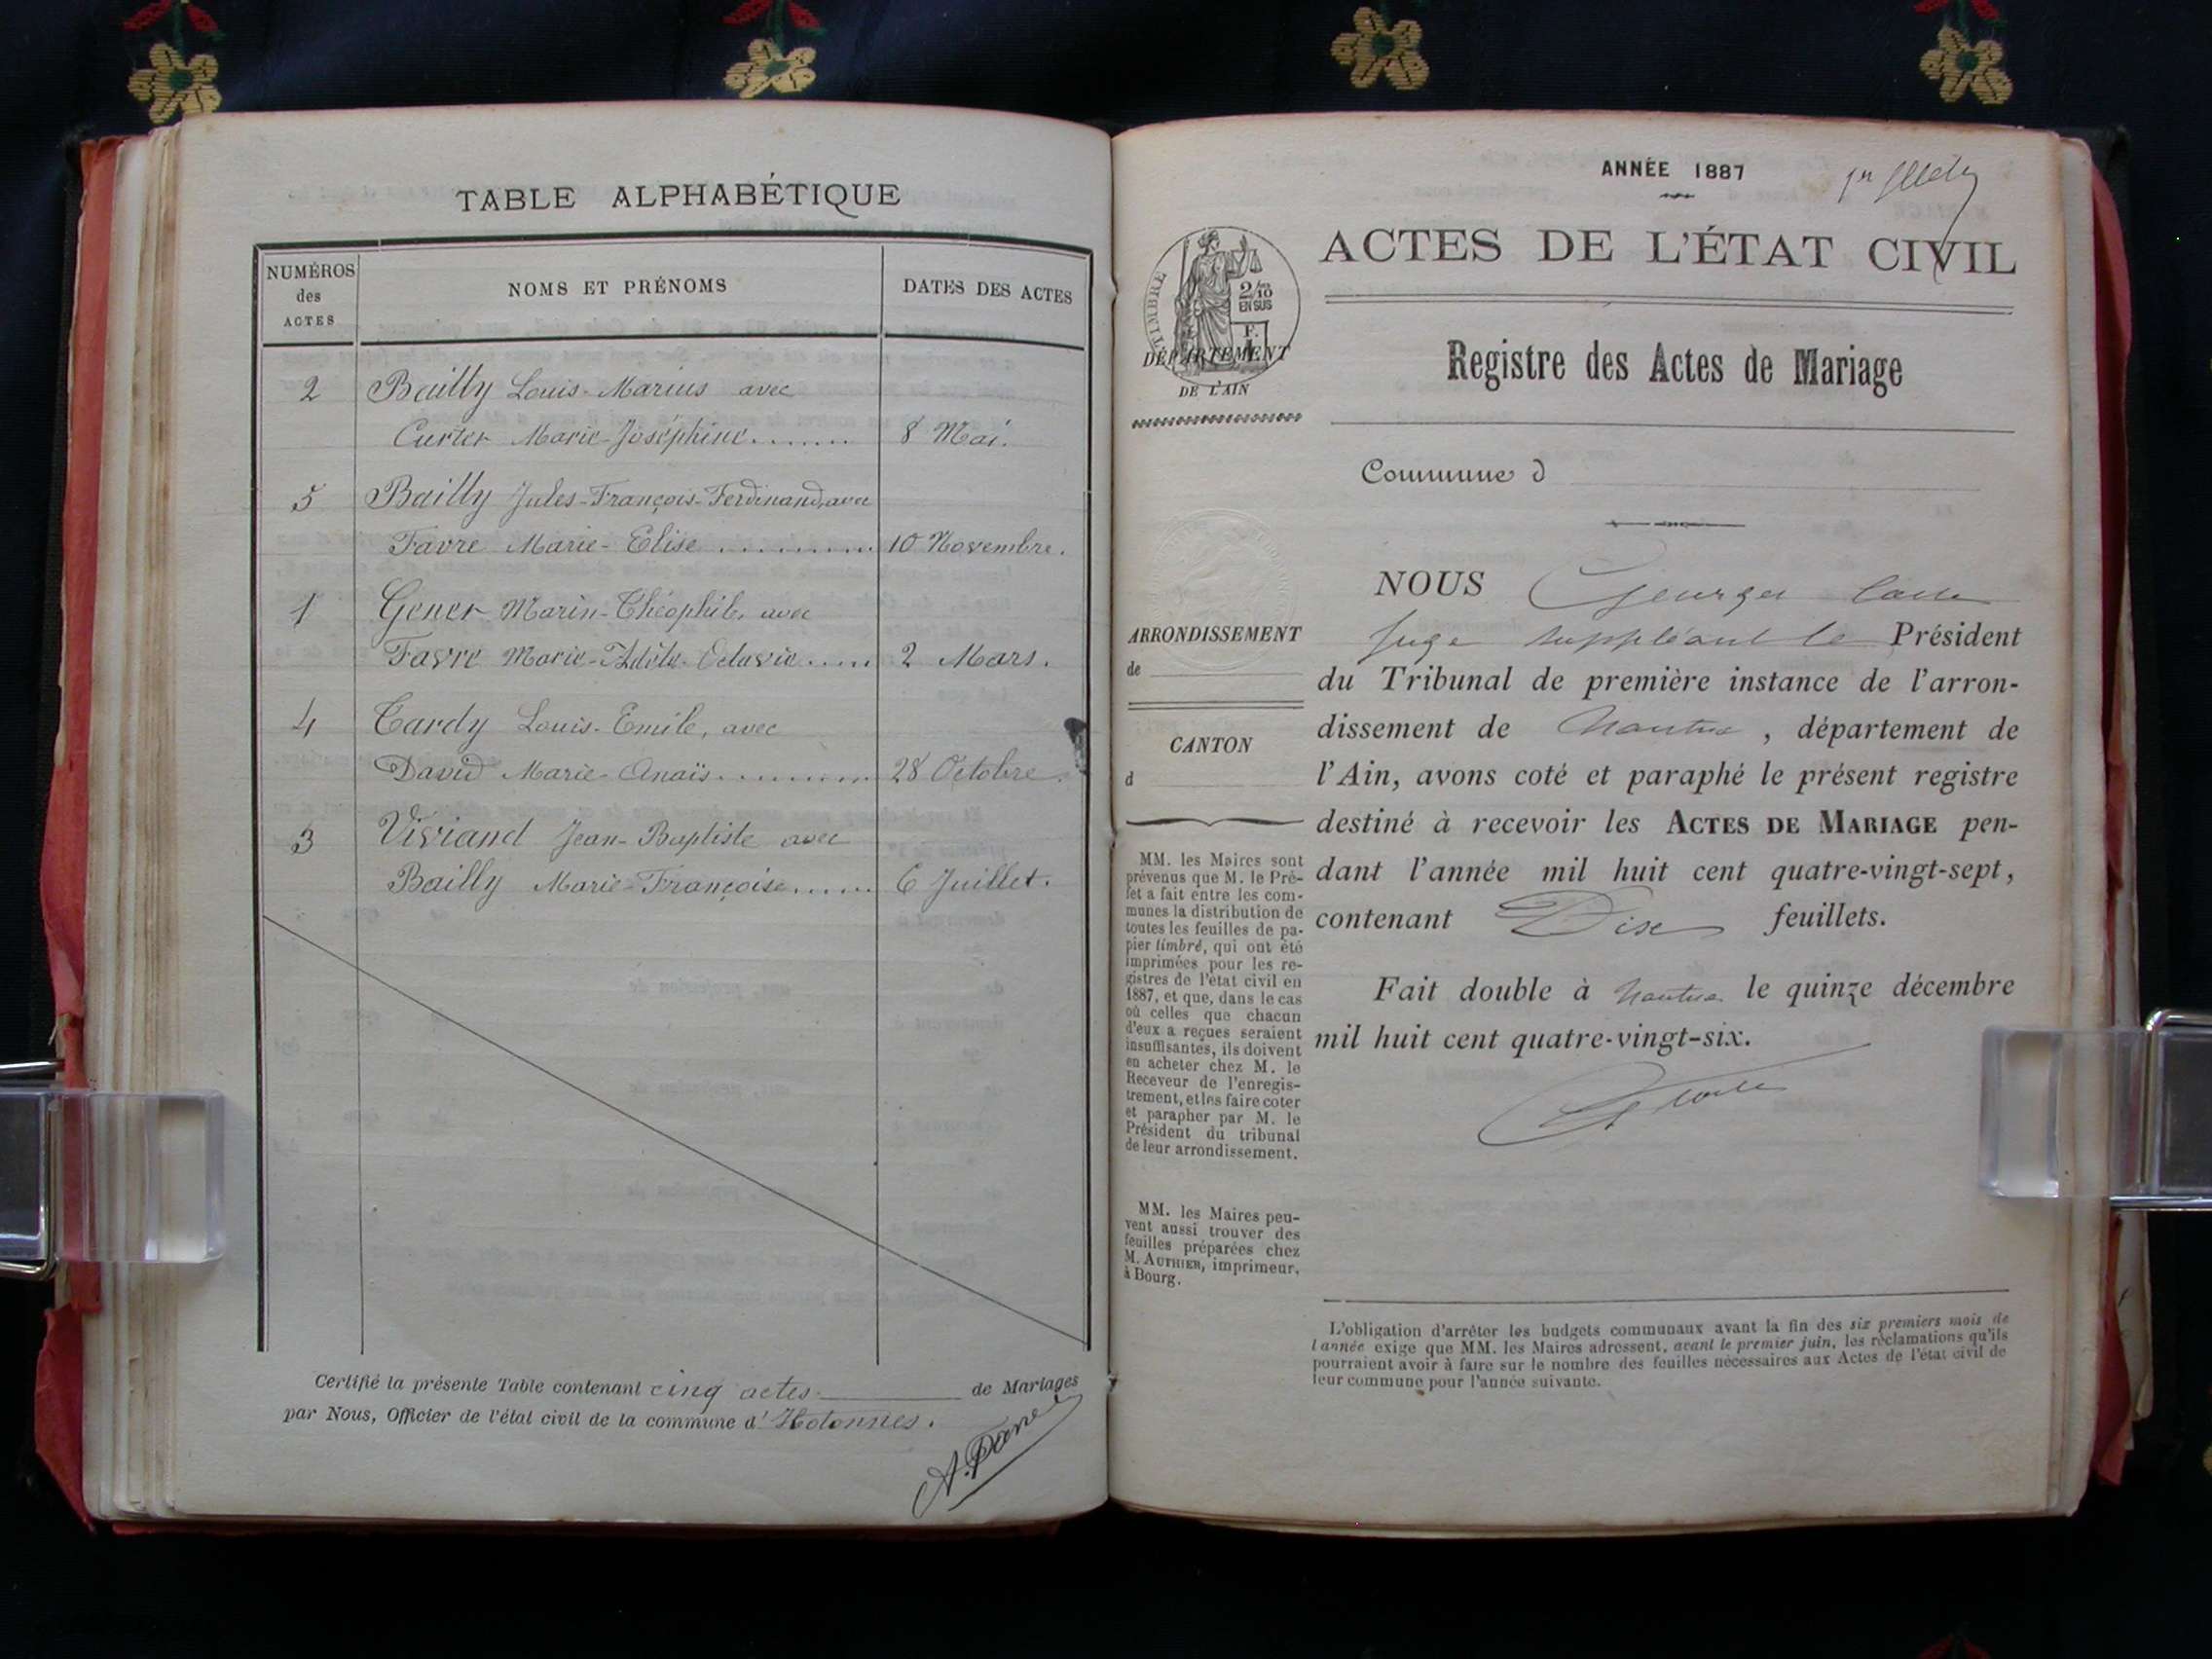 TABLE ALPHABÉTIQUE
NUMÉROS
des
ACTES
NOMS ET PRÉNOMS
DATES DES ACTES
2 Bailly Louis-Marius avec
Curtet Marie-Joséphine....... 8 Mai.
5 Bailly Jules-François-Ferdinand, avec
Favre Marie-Elise .......... 10 Novembre.
1 Genet Marin-Théophile, avec
Favre Marie-Adèle-Octavie..... 2 Mars.
4 Tardy Louis-Emile, avec
David Marie-Anaïs.......... 28 Octobre.
3 Viviand Jean-Baptiste avec
Bailly Marie-Françoise...... 6 Juillet.
Certifié la présente Table contenant cinq actes de Mariages
par Nous, Officier de l'état civil de la commune d'Hotonnes.
ANNÉE 1887
ACTES DE L'ÉTAT CIVIL
TIMBRE
2/10
EN SUS
F.
DÉPARTEMENT
DE L'AIN
Registre des Actes de Mariage
Commune d
ARRONDISSEMENT
de
CANTON
d
NOUS Georges
Juge suppléant le Président
du Tribunal de première instance de l'arron-
dissement de Nantua, département de
l'Ain, avons coté et paraphé le présent registre
destiné à recevoir les ACTES DE MARIAGE pen-
dant l'année mil huit cent quatre-vingt-sept,
contenant Dix feuillets.
Fait double à Nantua le quinze décembre
mil huit cent quatre-vingt-six.
MM. les Maires sont
prévenus que M. le Pré-
fet a fait entre les com-
munes la distribution de
toutes les feuilles de pa-
pier timbré, qui ont été
imprimées pour les re-
gistres de l'état civil en
1887, et que, dans le cas
où celles que chacun
d'eux a reçues seraient
insuffisantes, ils doivent
en acheter chez M. le
Receveur de l'enregis-
trement, et les faire coter
et parapher par M. le
Président du tribunal
de leur arrondissement.
MM. les Maires peu-
vent aussi trouver des
feuilles préparées chez
M. AUTHIER, imprimeur,
à Bourg.
L'obligation d'arrêter les budgets communaux avant la fin des six premiers mois de
l'année exige que MM. les Maires adressent, avant le premier juin, les réclamations qu'ils
pourraient avoir à faire sur le nombre des feuilles nécessaires aux Actes de l'état civil de
leur commune pour l'année suivante.